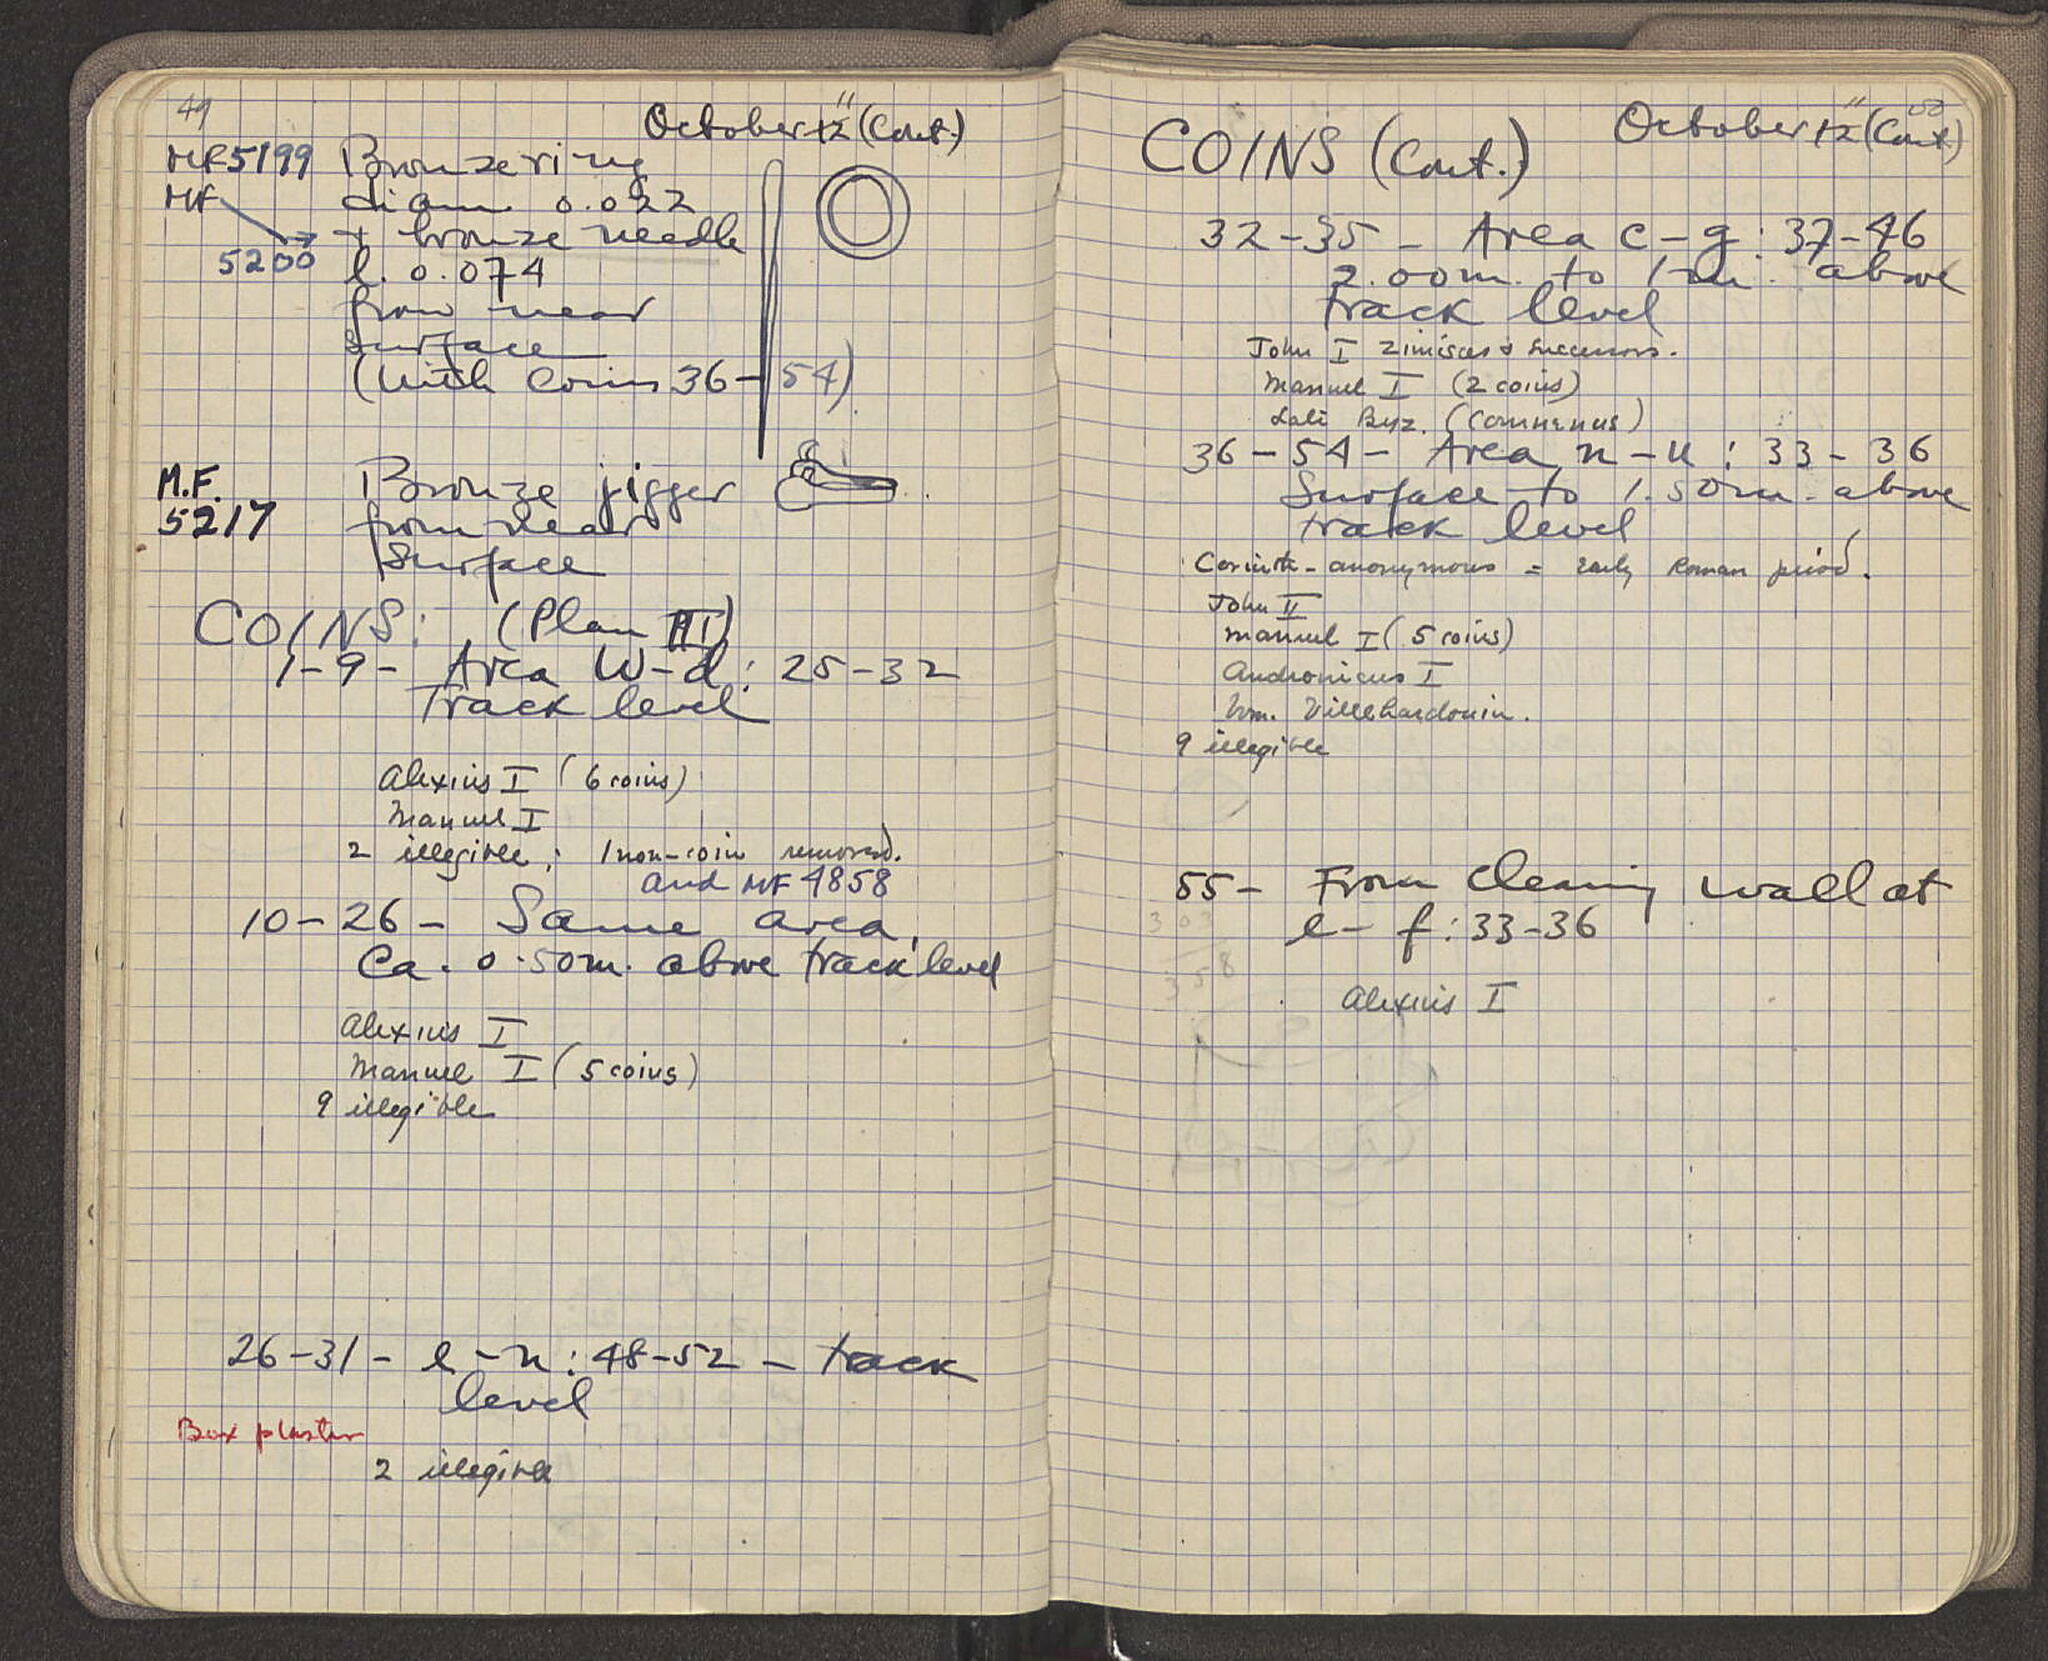 49
October 12 11 (Cont.)
MF5199 Bronze ring
MF diam 0.022
→ + bronze needle
5200 l. 0.074
from near
surface
(with coins 36-54)
M.F. Bronze jigger
5217 from near
surface
COINS: (Plan III)
1-9- Area W-d: 25-32
Track level
Alexius I (6 coins)
Manuel I
2 illegible; 1 non-coin removed.
and MF 4858
10-26- Same area,
Ca. 0.50m. above track level
Alexius I
Manuel I (5 coins)
9 illegible
26-31- l-n: 48-52 - track
level
Box plaster
2 illegible
50
October 12 11 (Cont)
COINS (Cont.)
32-35 - Area c-g: 37-46
2.00m. to 1 m. above
track level
John I Zimisces & successors.
Manuel I (2 coins)
Late Byz. (Comnenus)
36-54- Area n-u: 33-36
Surface to 1.50m. above
track level
Corinth - anonymous = Early Roman period.
John II
Manuel I (5 coins)
Andronicus I
Wm. Villehardouin.
9 illegible
55- From cleaning wall at
e-f: 33-36
303
358
Alexius I